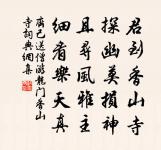 君到香山寺
探幽莫損神
且尋風雅主
細看樂天真
齊己送僧游龍門香山
寺詞典網集